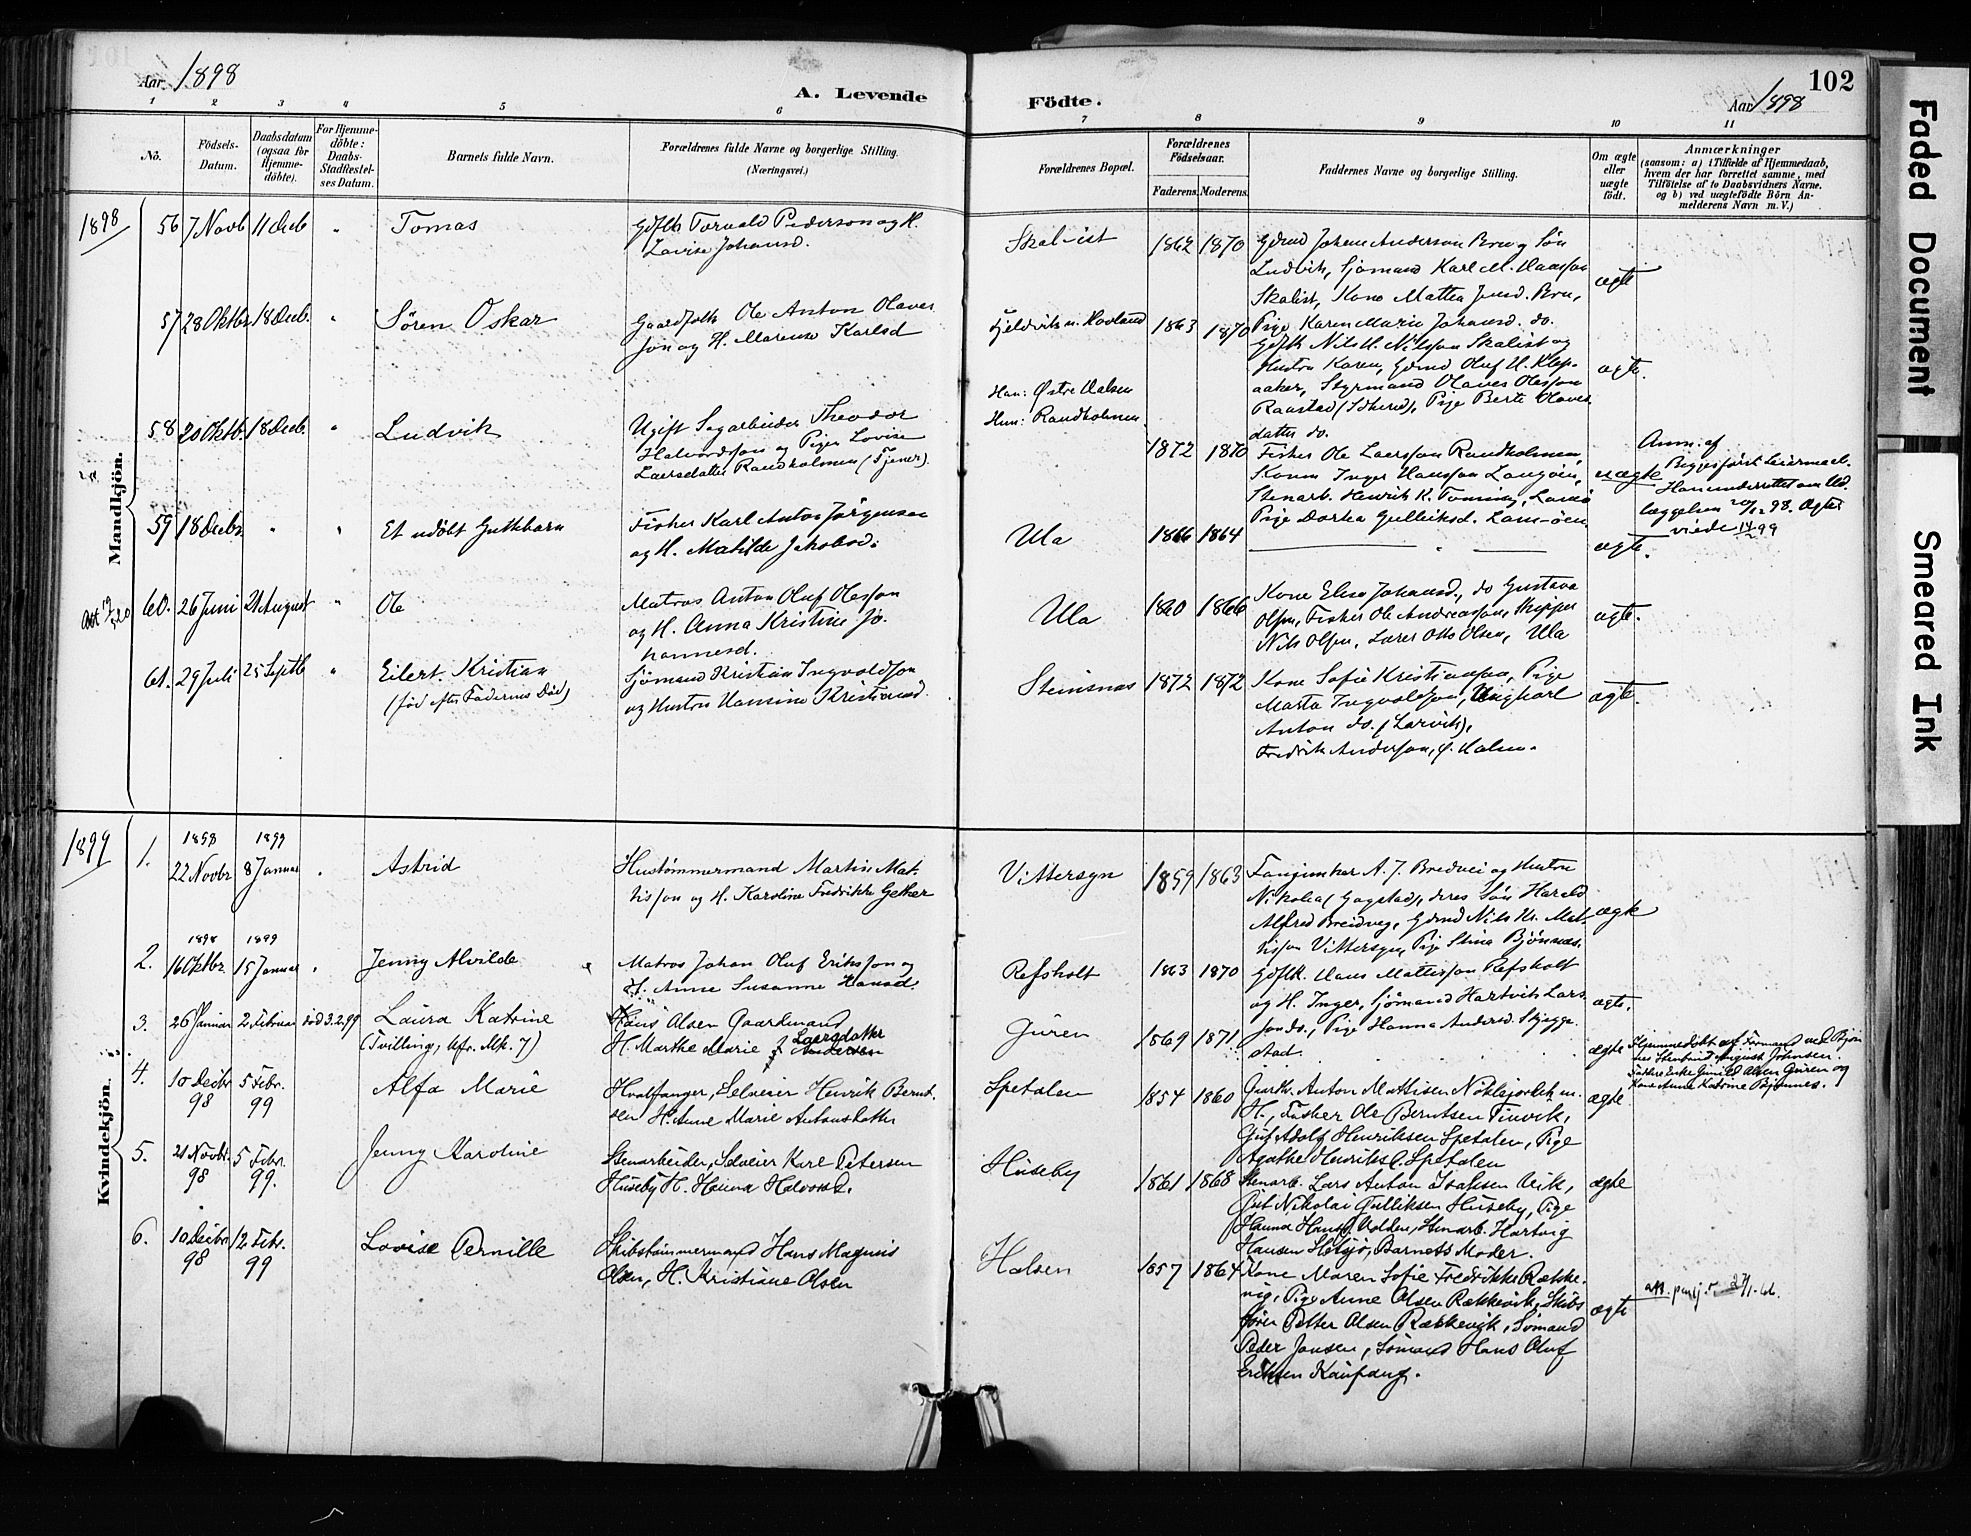 Aar 1898
A. Levende
Födte.
Aar 1898
102
Faded Document
Smeared Ink
1 2 3 4 5 6 7 8 9 10 11
No.
Födsels-
Datum.
Daabsdatum
(ogsaa for
Hjemme-
döbte).
For Hjemme-
döbte:
Daabs-
Stadfæstel-
ses Datum.
Barnets fulde Navn.
Forældrenes fulde Navne og borgerlige Stilling.
(Næringsvei.)
Forældrenes Bopæl.
Forældrenes
Födselsaar.
Faderens. Moderens.
Faddernes Navne og borgerlige Stilling.
Om ægte
eller
uægte
födt.
Anmærkninger
(saasom: a) i Tilfælde af Hjemmedaab,
hvem der har forrettet samme, med
Tilföielse af to Daabsvidners Navne.
og b) ved uægtefödte Börn An-
melderens Navn m. V.)
1898
Mandkjön.
56 7 Novb 11 Decb "
Tomas
Gdflk Torvald Pederson og H.
Lovise Johansd.
Skalvist
1862 1870
Gdmd Johan Anderson Bru og Søn
Ludvik, Sjømand Karl M.
Skalist, Kone Mattea Bru,
Pige Karen Marie Johansd. do.
ægte
57 28 Oktbr 18 Decb. "
Søren Oskar
Gaardfolk Ole Anton Olaves
søn og H. Marense Karlsd
Hovland
1863 1870
Gdflk Nils H. Nilsson Skalist og
Hustru Karen, Gdmd Oluf H. Klep-
aaker, Styrmand Olaves Olesson
Raastad, Pige Berte Olaves-
datter do.
ægte.
58 20 Oktb. 18 Decb. "
Ludvik
Ugift Sagarbeider Theodor
Halvordsson og Pige Lovise
Laersdatter Randholmen (Tjener).
Han: Østre Halsen
Hun: Randholmen
1872 1870
Fisker Ole Laersson Randholmen,
Konen Inger Hansson Langöen,
Stenarb. Henrik K.
Pige Dorthea Gulliksd. Lamöen
uægte
Anm. af
Begges første Leiermaal.
Han underrettet om Ud-
læggelsen 20/12 98. Ægte-
viede 99
59 18 Decbr " "
Et udöbt Guttebarn
Fisker Karl Anton Jørgensen
og H. Matilde Jakobsd.
Ula
1866 1864
ægte.
60. 26 Juni 21 August "
Ole
Matros Anton Oluf Olesson
og H. Anna Kristine Jo-
hannesd.
Ula
1860 1866
Kone Elise Johansd., do Gustava
Olsen, Fisker Ole Andreassen, Skipper
Nils Olsen, Lærer Otto Olsen, Ula
ægte.
61. 29 Juli 25 Septb "
Eilert Kristian
(fød efter Faderens Død)
Sjömand Kristian Ingvoldson
og Hustru Hansine Kristiansd.
Steinsnæs
1872 1872
Kone Sofie Kristiansen, Pige
Marta Ingvoldsen, Ung Karl
Anton do. (Larvik),
Fredrik Andersson, Ø. Halsen.
ægte.
1899
Kvindekjön.
1. 1898 22 Novbr 1899 8 Januar "
Astrid
Hustømmermand Martin Mat-
tisson og H. Karoline Fredrikke Gether
Vittersyn
1859 1863
A. J. Bredvei og Hustru
Nikolea, deres Søn Harald
Alfred Breidveg, Gdmd Nils M. Mat-
tisson Vittersyn, Pige Stina Bjønnæs.
ægte
2. 1898 16 Oktbr. 1899 15 Januar "
Jenny Alvilde
Matros Johan Oluf Eriksson og
H. Anne Susanne Hansd.
Refsholt
1863 1870
Gdflk. Hans Mattisson Refsholt
og H. Inger, Sjömand Hartvik Lars-
son do., Pige Hanna Andersd. Skjegge-
stad.
ægte.
3. 26 Januar 2 Februar död 3.2.99
Laura Katrine
(Tvilling, kfr. Mk. 7)
Hans Olsen Gaardmand
H. Marthe Marie Laersdatter
Jüren
1869 1871
ægte
Hjemmedøbt af Formand ved Bjön-
nes Stenbrud August Johnsen.
Faddere Enke Gunild Olsen Guren og
Kone Anne Katrine Bjönnes.
4. 10 Decbr 98 5 Febr. 99
Alfa Marie
Hvalfanger, Selveier Henrik Bernt-
sen H. Anne Marie Antonsdatter
Spetalen
1854 1860
Gaardb. Anton Mathisen Nøklegaard m.
H., Fisker Ole Berntsen Tinvik,
Gut Adolf Henriksen Spetalen, Pige
Agathe Henriksd. Spetalen
ægte
5. 21 Novbr. 98 5 Febr. 99.
Jenny Karoline
Stenarbeider, Selveier Karl Petersen
Huseby H. Hanna Halvorsd.
Huseby
1861 1868
Stenarb. Lars Anton Isaksen Vik,
Gut Nikolai Gulliksen Huseby, Pige
Hanna Hansd. Volden, Stenarb. Hartvig
Hansen Hølsjö, Barnets Moder.
ægte
6. 10 Decbr 98 12 Febr. 99
Lovise Pernille
Skibstømmermand Hans Magnus
Olsen, H. Kristiane Olsen
Halsen
1857 1864
Kone Maren Sofie Fredrikke Række-
vig, Pige Anne Olsen Rækkevik, Skibs-
fører Petter Olsen Rækkevik, Sømand
Peder Jansen, Sømand Hans Oluf
Eriksen Kaupang.
ægte